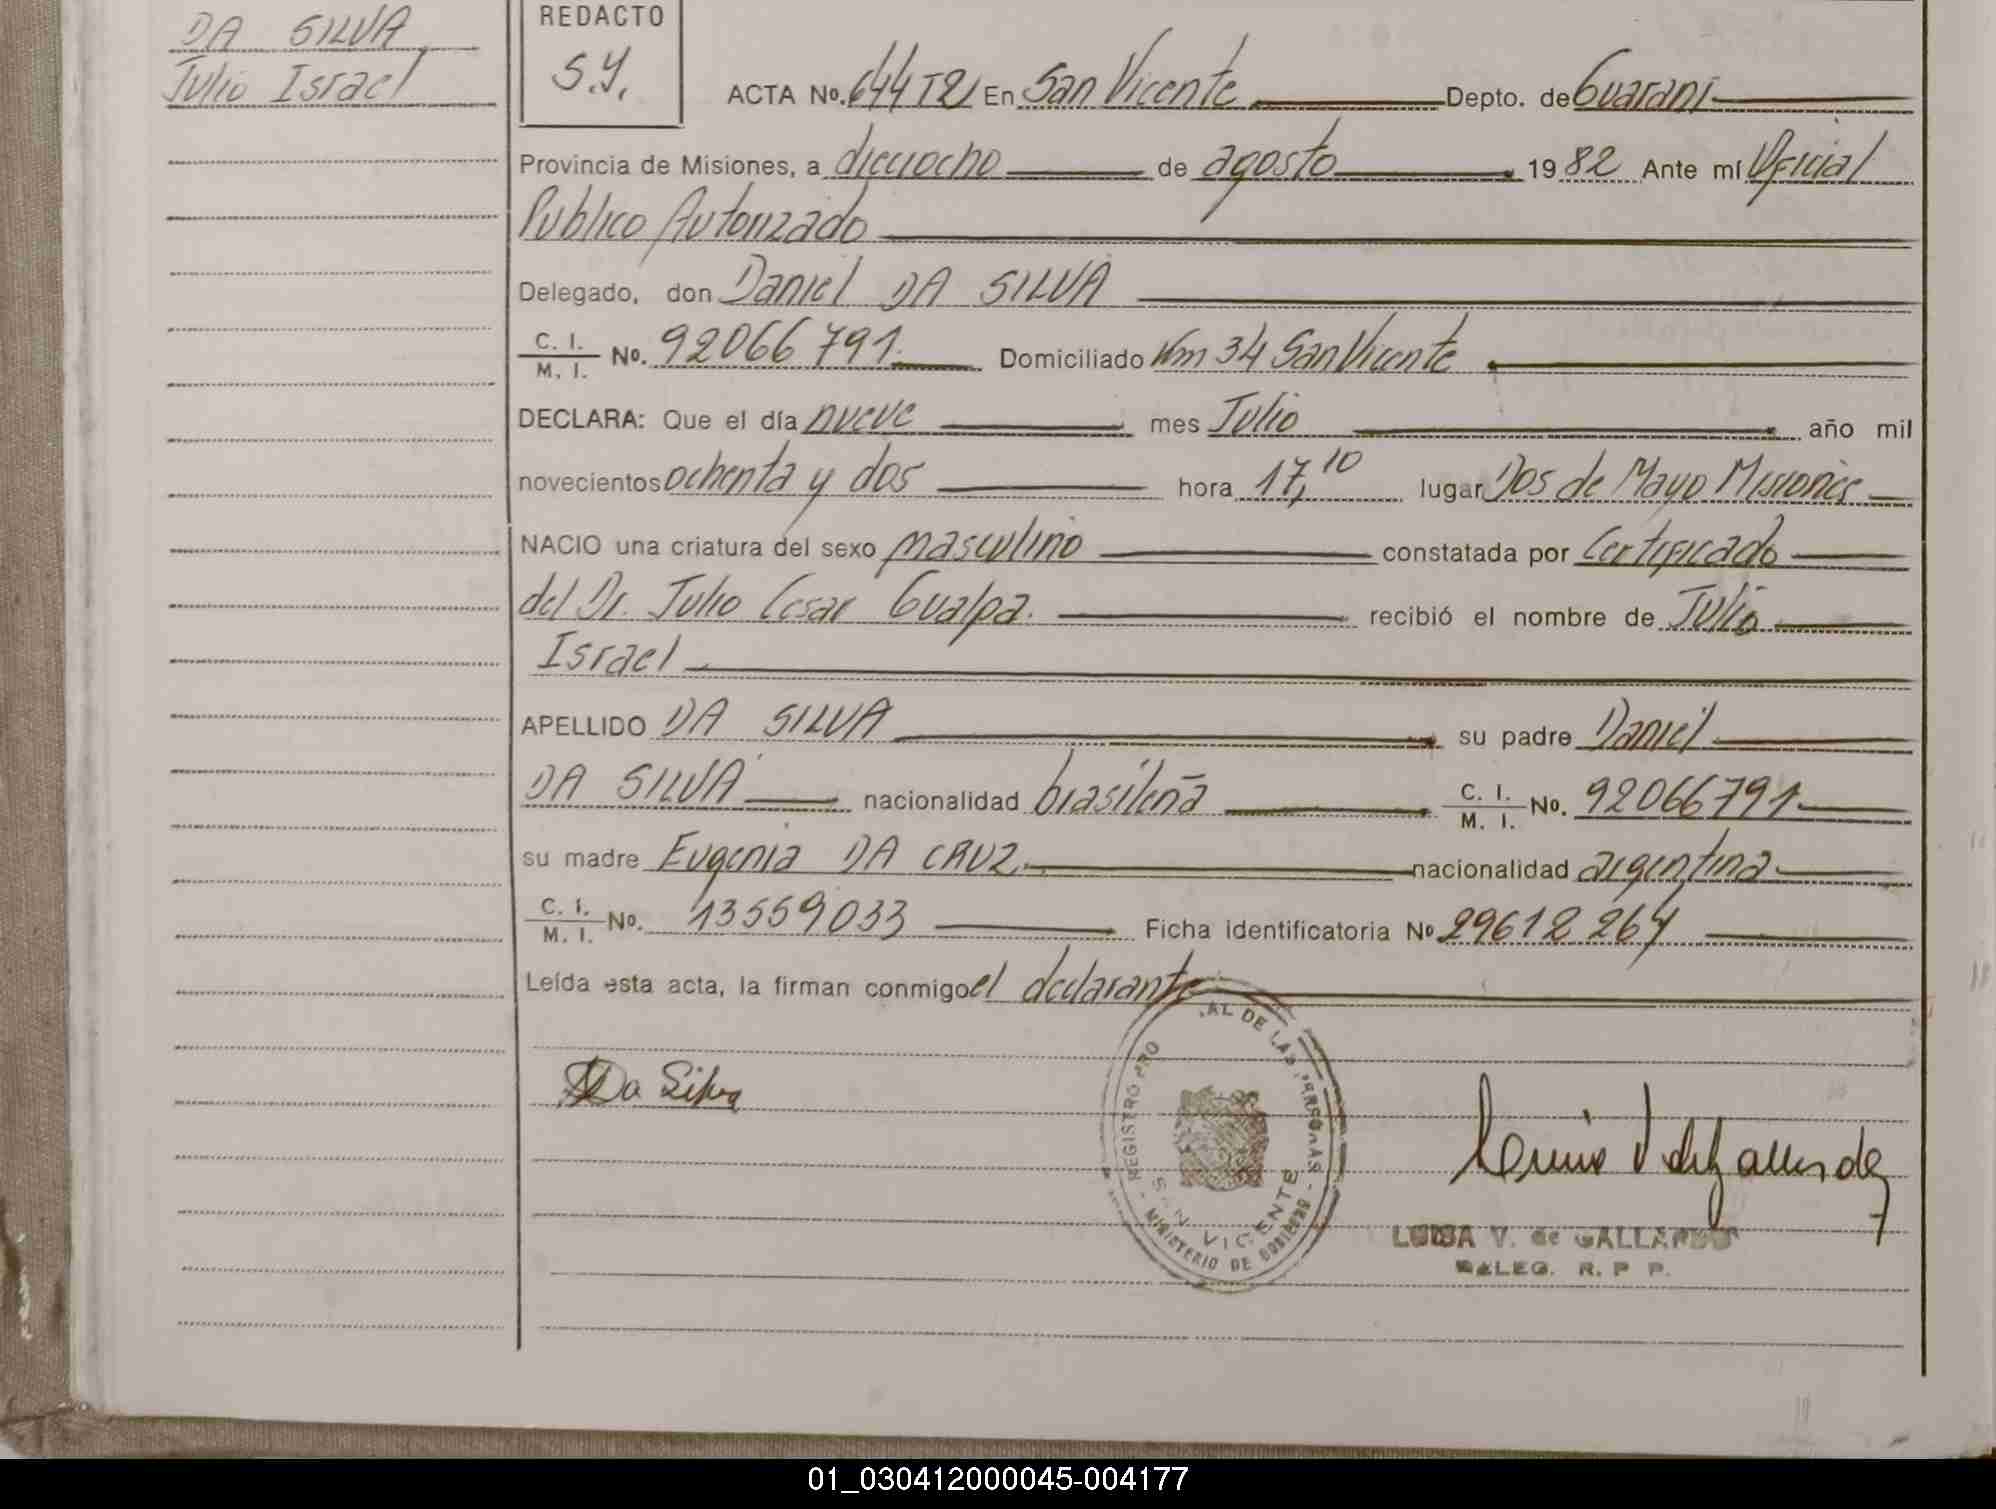 DA SILVA
Julio Israel
REDACTO
S.Y.
ACTA No. 644 T2 En San Vicente Depto. de Guaraní
Provincia de Misiones, a dieciocho de agosto 1982 Ante mí Oficial
Publico Autorizado
Delegado, don Daniel DA SILVA
C. I. / M. I. No. 92066791 Domiciliado Km 34 San Vicente
DECLARA: Que el día nueve mes Julio año mil
novecientos ochenta y dos hora 17,10 lugar Dos de Mayo Misiones
NACIO una criatura del sexo masculino constatada por Certificado
del Dr. Julio Cesar Gualpa. recibió el nombre de Julio
Israel
APELLIDO DA SILVA su padre Daniel
DA SILVA nacionalidad brasileña C. I. / M. I. No. 92066791
su madre Eugenia DA CRUZ nacionalidad argentina
C. I. / M. I. No. 13559033 Ficha identificatoria No 29612264
Leída esta acta, la firman conmigo el declarante
Da Silva
REGISTRO PRO AL DE LAS PERSONAS - MINISTERIO DE GOBIERNO -
SAN VICENTE
LUISA V. de GALLARDO
DELEG. R. P. P.
01_030412000045-004177